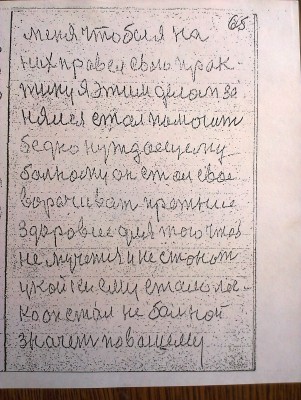 65
меня чтобы я на
них провел свою прак-
тику я этим делом за
нялся стал помогат
бедно нуждаещему
болному он стал свое
ворачиват прежние
здоровие для того чтоб
не мучится и не стонат
укой ки ему стало лег-
ко он стал не болной
значет по вашему